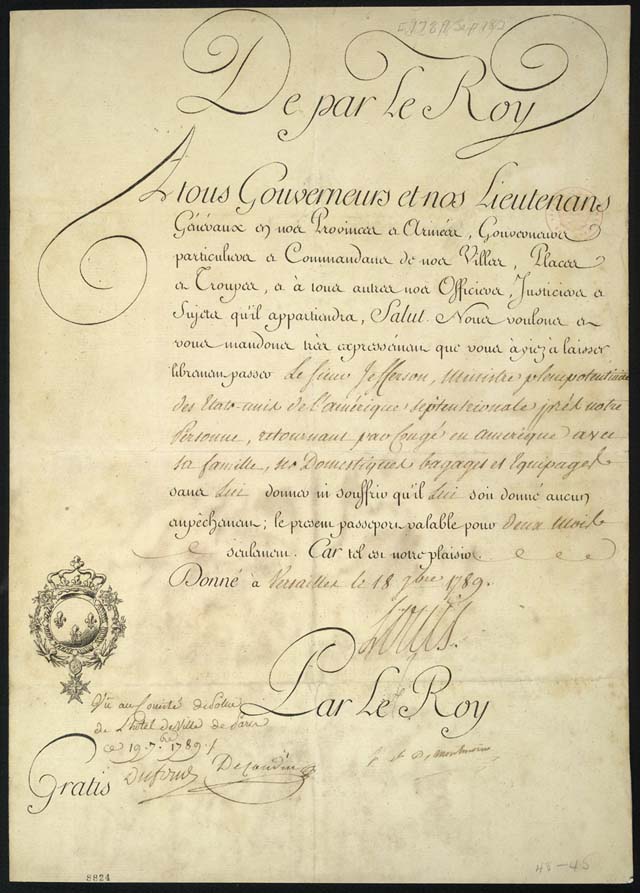 1789 Sep 18
De par Le Roy
A tous Gouverneurs et nos Lieutenans
Généraux en nos Provinces et Armées, Gouverneurs
particuliers et Commandans de nos Villes, Places
et Troupes, et à tous autres nos Officiers, Justiciers et
Sujets qu'il appartiendra, Salut. Nous voulons et
vous mandons très expressément que vous ayiez à laisser
librement passer Le Sieur Jefferson, Ministre plenipotentiaire
des Etats unis de l'amérique septentrionale près notre
Personne, retournant par Congé en amerique avec
sa famille, ses Domestiques bagages et Equipages
sans lui donner ni souffrir qu'il lui soit donné aucun
empêchement; le présent passeport valable pour Deux Mois
seulement. Car tel est notre plaisir.
Donné à Versailles le 18 7bre 1789.
Louis
Par Le Roy
Vu au Comité de Police
de L'hotel de Ville de Paris
ce 19. 7.bre 1789.
Gratis
Cte de Montmorin
8824
48-45